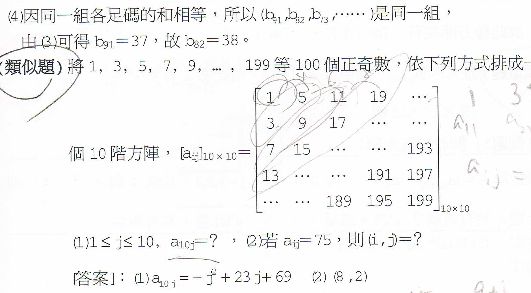 (4)因同一組各足碼的和相等，所以(b₉₁,b₈₂,b₇₃,……)是同一組，
由(3)可得b₉₁＝37，故b₈₂＝38。
(類似題) 將 1, 3, 5, 7, 9, …, 199等 100 個正奇數，依下列方式排成一
個 10 階方陣，[aᵢⱼ]₁₀ₓ₁₀＝
1 5 11 19 …
3 9 17 … …
7 15 … … 193
13 … … 191 197
… … 189 195 199
10×10
(1)1≤ j≤ 10, a₁₀ⱼ=？，(2)若 aᵢⱼ=75，則(i, j)=？
[答案]：(1) a₁₀ⱼ = –j²+23 j+69 (2) (8 ,2)